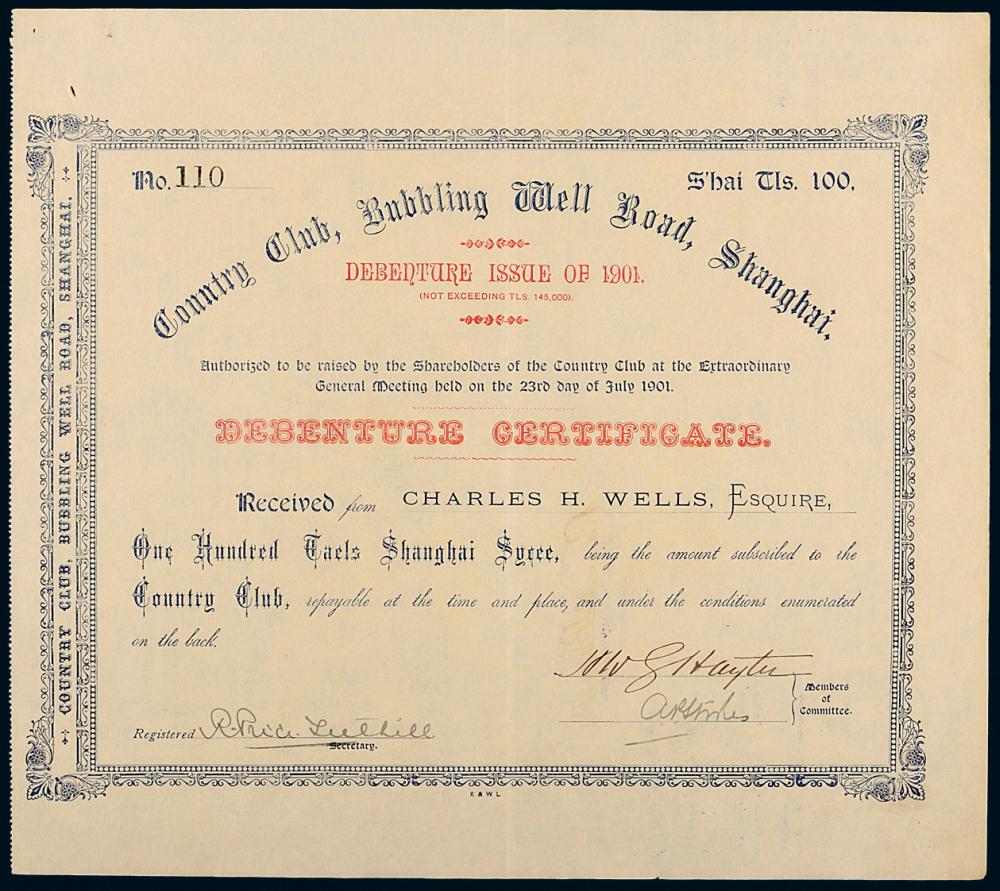 No. 110
S'hai Tls. 100.
Country Club, Bubbling Well Road, Shanghai.
DEBENTURE ISSUE OF 1901.
(NOT EXCEEDING TLS. 145,000).
Authorized to be raised by the Shareholders of the Country Club at the Extraordinary
General Meeting held on the 23rd day of July 1901.
DEBENTURE CERTIFICATE.
Received from CHARLES H. WELLS, ESQUIRE,
One Hundred Taels Shanghai Sycee, being the amount subscribed to the
Country Club, repayable at the time and place, and under the conditions enumerated
on the back.
Members
of
Committee.
Registered
Secretary.
K & W L
COUNTRY CLUB, BUBBLING WELL ROAD, SHANGHAI.